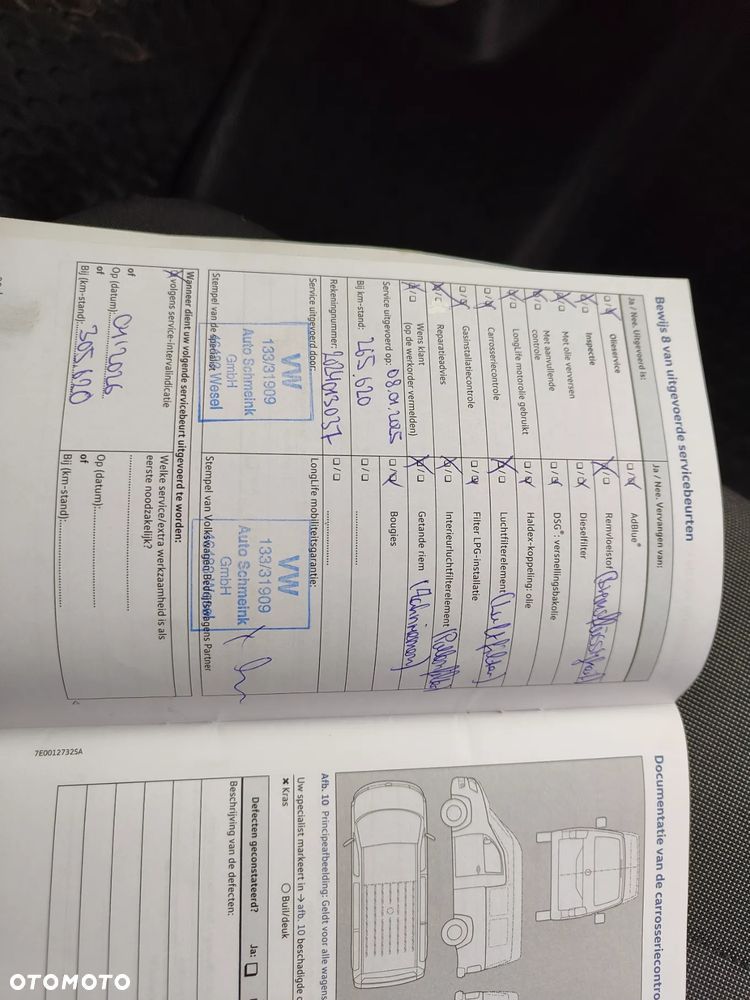 Bewijs 8 van uitgevoerde servicebeurten
Ja / Nee. Uitgevoerd is:
Ja / Nee. Vervangen van:
Olieservice
Inspectie
Met olie verversen
Met aanvullende controle
LongLife motorolie gebruikt
Carrosseriecontrole
Gasinstallatiecontrole
Reparatieadvies
Wens klant
(op de werkorder vermelden)
Service uitgevoerd op: 08.01.2025
Bij km-stand: 265.620
Rekeningnummer: 2024013037
Service uitgevoerd door:
VW
133/31909
Auto Schmeink
GmbH
46483 Wesel
Stempel van de specialist
AdBlue®
Remvloeistof Bremsflüssigkeit
Dieselfilter
DSG®: versnellingsbakolie
Haldex-koppeling: olie
Luchtfilterelement Luftfilter
Filter LPG-installatie
Interieurluchtfilterelement Pollenfilter
Getande riem Zahnriemen
Bougies
LongLife mobiliteitsgarantie:
VW
133/31909
Auto Schmeink
GmbH
Stempel van Volkswagen Bedrijfswagens Partner
Wanneer dient uw volgende servicebeurt uitgevoerd te worden:
volgens service-intervalindicatie
of
Op (datum): 01/2026
of
Bij (km-stand): 305.620
Welke service/extra werkzaamheid is als
eerste noodzakelijk?
Op (datum):
of
Bij (km-stand):
7E0012732SA
Documentatie van de carrosseriecontro
Afb. 10 Principeafbeelding: Geldt voor alle wagens
Uw specialist markeert in → afb. 10 beschadigde
Kras
Buil/deuk
Defecten geconstateerd?
Ja:
Beschrijving van de defecten:
OTOMOTO